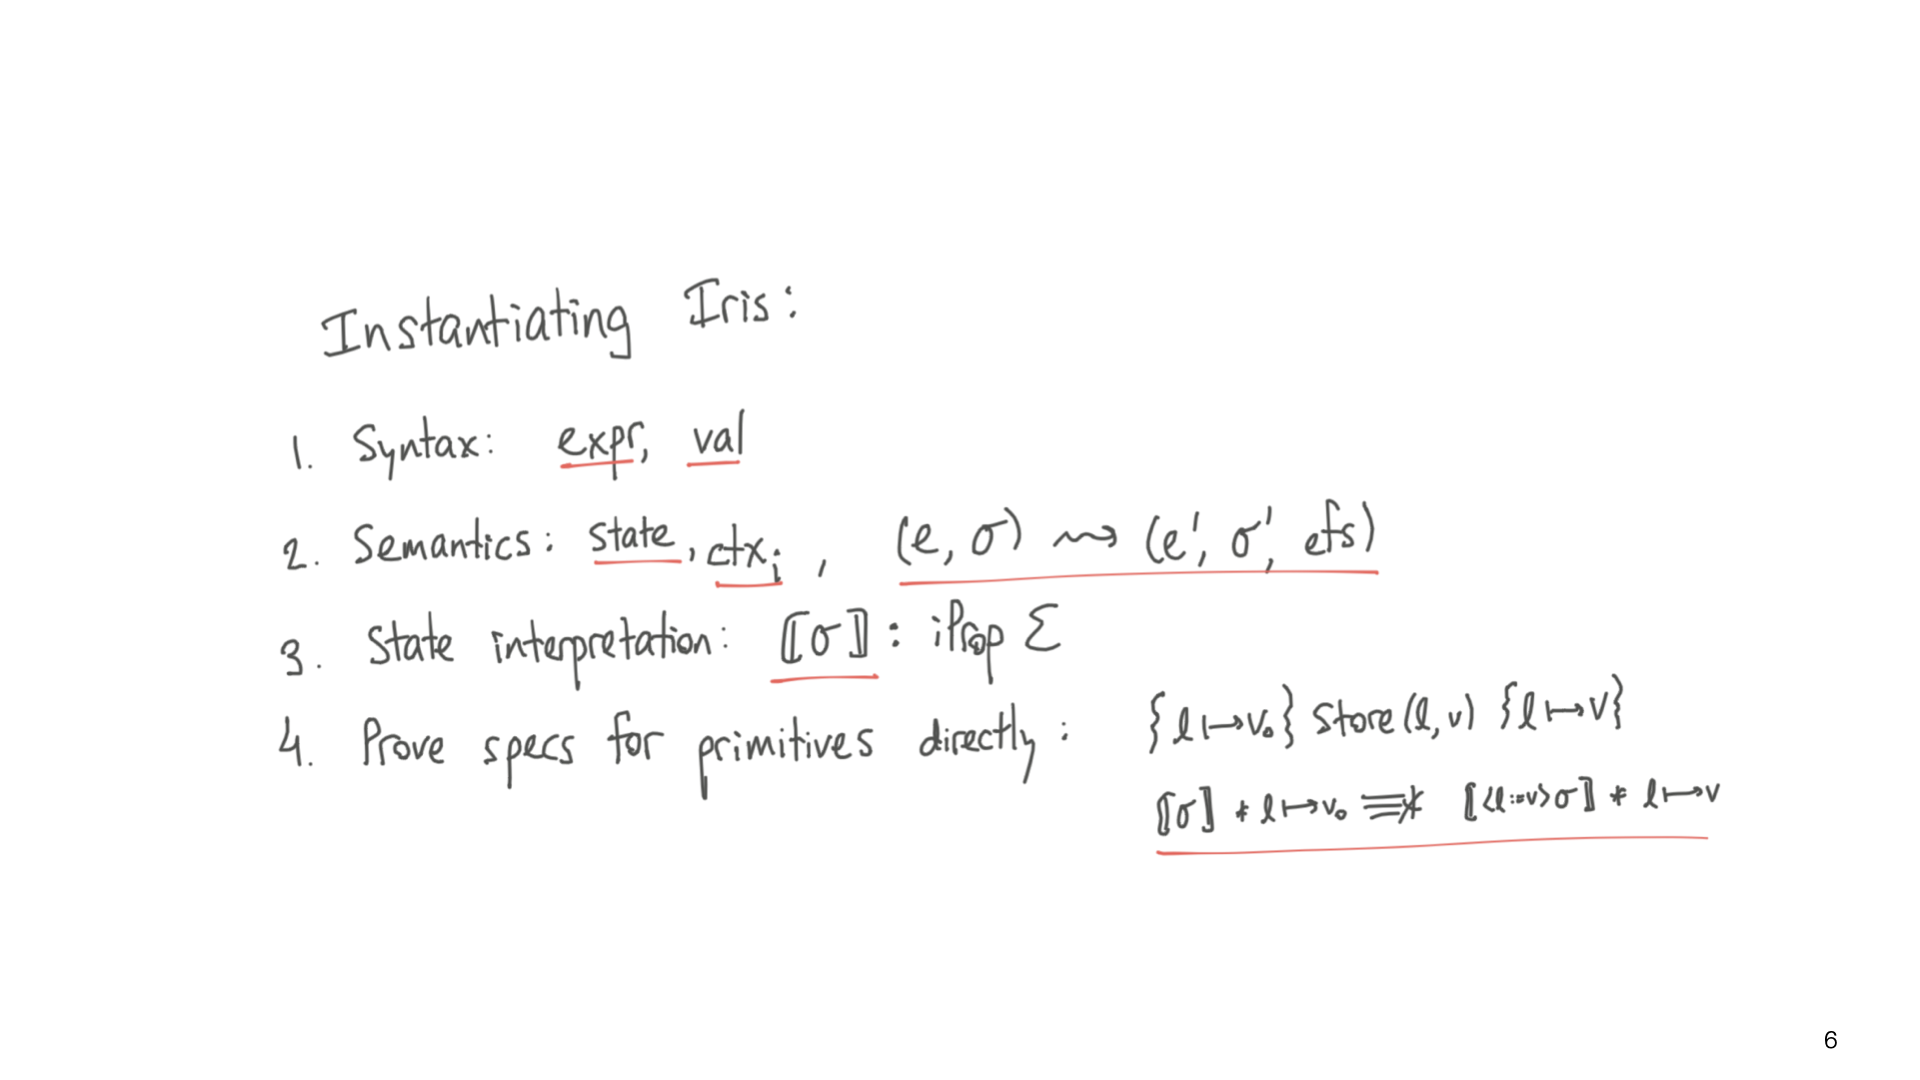 Instantiating Iris:
1. Syntax: expr, val
2. Semantics: state, ctxᵢ, (e, σ) ⇝ (e', σ', efs)
3. State interpretation: ⟦σ⟧ : iProp Σ
4. Prove specs for primitives directly: {ℓ ↦ v₀} Store(ℓ, v) {ℓ ↦ v}
⟦σ⟧ * ℓ ↦ v₀ ≡∗ ⟦<ℓ:=v>σ⟧ * ℓ ↦ v
6